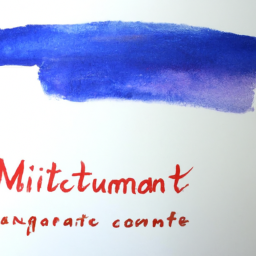 Miitctumant
anqaratc comnte